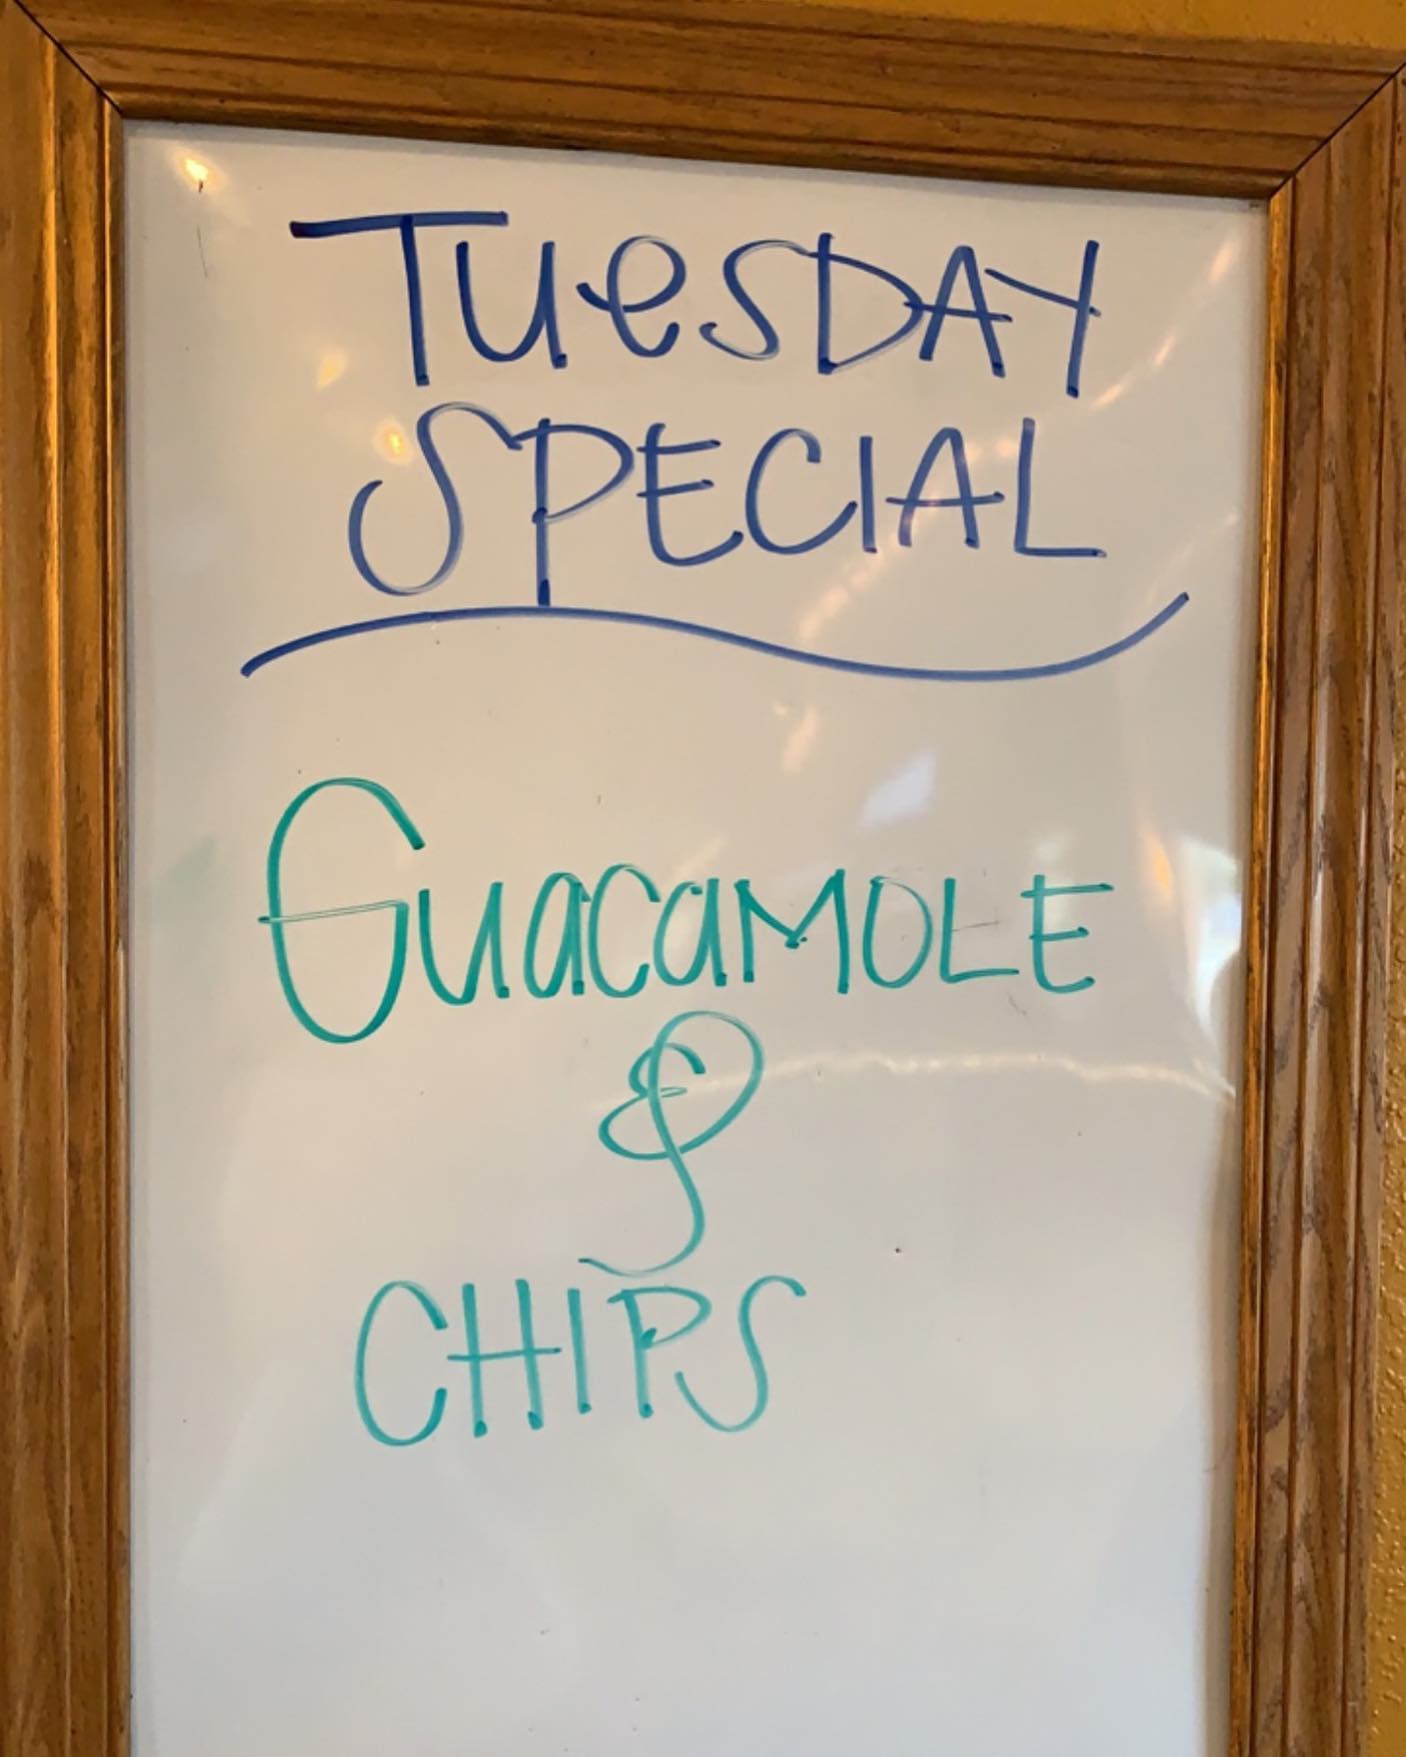 TueSDAY
SPECIAL
GuacaMOLE
&
CHIPS